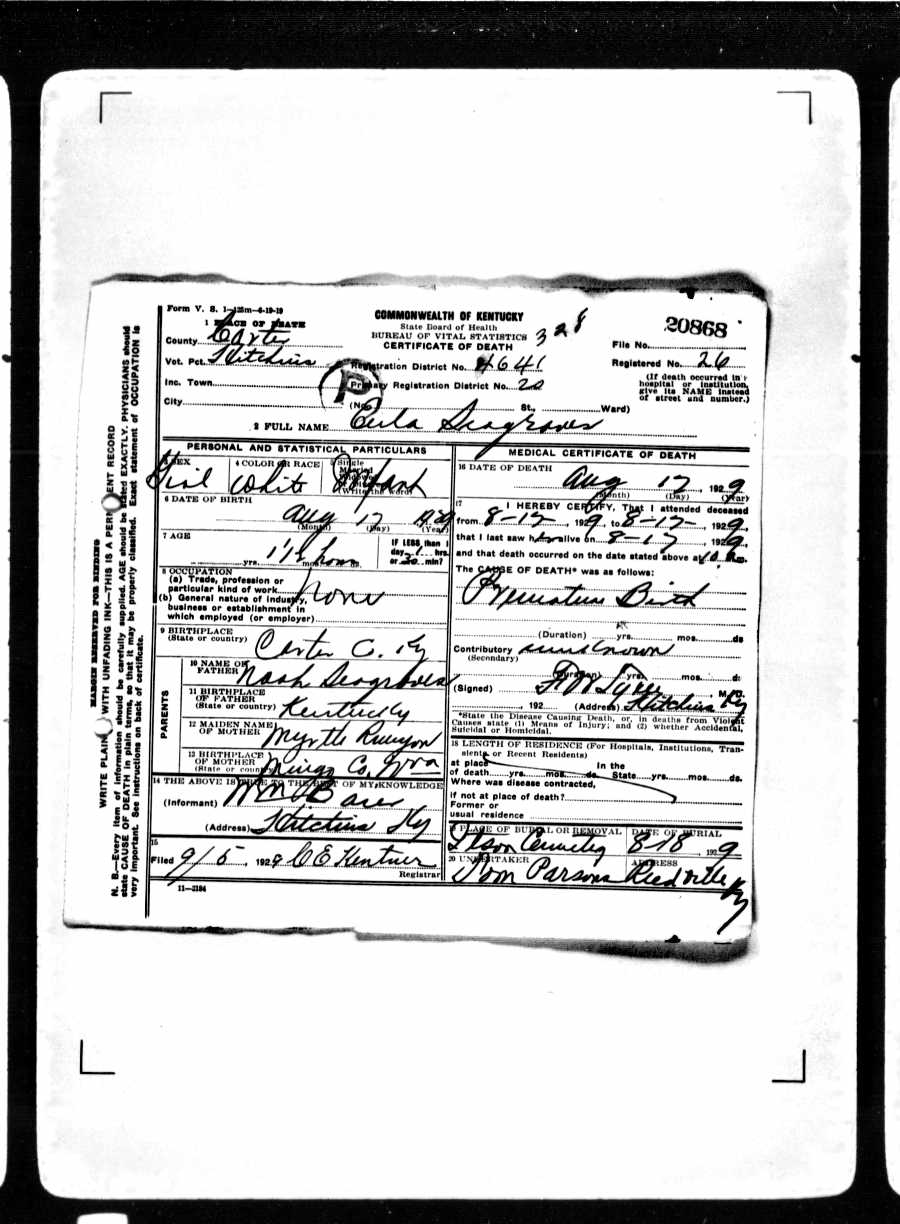 Form V. S. 1—125m—6-19-19
COMMONWEALTH OF KENTUCKY
State Board of Health
BUREAU OF VITAL STATISTICS
CERTIFICATE OF DEATH
328
20868
File No.
1 PLACE OF DEATH
County Carter
Vot. Pct. Hitchins
Registration District No. 4641
Registered No. 26
Inc. Town
Primary Registration District No. 20
(If death occurred in a hospital or institution, give its NAME instead of street and number.)
City
(No. St., Ward)
2 FULL NAME Eula Seagraves
PERSONAL AND STATISTICAL PARTICULARS
3 SEX Girl
4 COLOR OR RACE White
5 Single
Married
Widowed
(Write the word)
Infant
6 DATE OF BIRTH
Aug 17 1929
(Month) (Day) (Year)
7 AGE
1 1/2 hours
yrs. mos.
IF LESS than 1
day 1 hrs.
or 30 min?
8 OCCUPATION
(a) Trade, profession or
particular kind of work
(b) General nature of industry,
business or establishment in
which employed (or employer)
None
9 BIRTHPLACE
(State or country)
Carter Co. Ky
PARENTS
10 NAME OF
FATHER Noah Seagraves
11 BIRTHPLACE
OF FATHER
(State or country) Kentucky
12 MAIDEN NAME
OF MOTHER Myrtle Runyon
13 BIRTHPLACE
OF MOTHER
(State or country) Mingo Co. W va
14 THE ABOVE IS TRUE TO THE BEST OF MY KNOWLEDGE
(Informant) Wm
(Address) Hitchins Ky
15
Filed 9/5, 1929 C E Kentner
Registrar
11—3184
MEDICAL CERTIFICATE OF DEATH
16 DATE OF DEATH
Aug 17, 1929
(Month) (Day) (Year)
17 I HEREBY CERTIFY, That I attended deceased
from 8-17-, 1929, to 8-17-, 1929,
that I last saw her alive on 8-17, 1929,
and that death occurred on the date stated above at 10 m.
The CAUSE OF DEATH* was as follows:
Premature Birth
(Duration) yrs. mos. ds
Contributory unknown
(Secondary)
(Duration) yrs. mos. d:
(Signed) M. D.
, 192 (Address) Hitchins Ky
*State the Disease Causing Death, or, in deaths from Violent
Causes state (1) Means of Injury; and (2) whether Accidental,
Suicidal or Homicidal.
18 LENGTH OF RESIDENCE (For Hospitals, Institutions, Tran-
sients, or Recent Residents)
at place In the
of death yrs. mos. ds. State yrs. mos. ds.
Where was disease contracted,
if not at place of death?
Former or
usual residence
19 PLACE OF BURIAL OR REMOVAL
DATE OF BURIAL
Cemetery 8-18, 1929
20 UNDERTAKER
ADDRESS
Tom Parsons Reedville Ky
MARGIN RESERVED FOR BINDING
WRITE PLAINLY WITH UNFADING INK—THIS IS A PERMANENT RECORD
N. B.—Every item of information should be carefully supplied. AGE should be stated EXACTLY. PHYSICIANS should
state CAUSE OF DEATH in plain terms, so that it may be properly classified. Exact statement of OCCUPATION is
very important. See instructions on back of certificate.